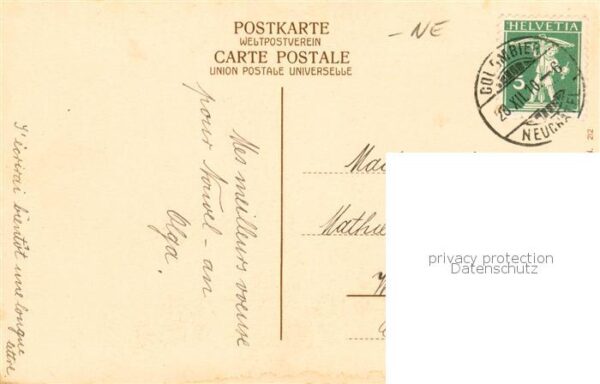 POSTKARTE
WELTPOSTVEREIN
CARTE POSTALE
UNION POSTALE UNIVERSELLE
-NE
HELVETIA
5
COLOMBIER
28.XII.10.-6
NEUCHATEL
Mes meilleurs voeuse
pour Nouvel-an
Olga.
J'écrirai bientôt une longue
lettre.
Mathie
privacy protection
Datenschutz